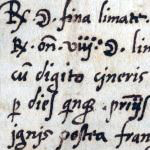 ℞. Ɔ. fina limate.
℞. oñ. viij. Ɔ. li
cũ digito cineris
p dies qnq̃. priꝰ
ignis postea fran